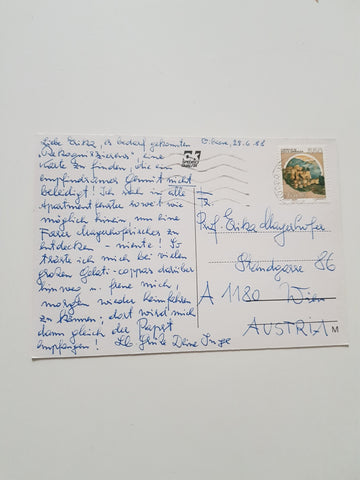 Liebe Erika, es bedarf gekonnten
"Rekognoszierens", eine
Karte zu finden, die ein
empfindsames Gemüt nicht
beleidigt! Ich sah in alle
Apartmentfenster soweit wie
möglich hinein, um eine
Faser Mayerhoferisches zu
entdecken - niente! So
tröste ich mich bei vielen
großen Gelati-coppas darüber
hinweg u. freue mich,
morgen wieder heimfahren
zu können; dort wird mich
dann gleich der Papst
empfangen! Alles Liebe Deine Inge
29.6.88
550
Fr.
Prof. Erika Mayerhofer
86
A 1180 Wien
AUSTRIA
M